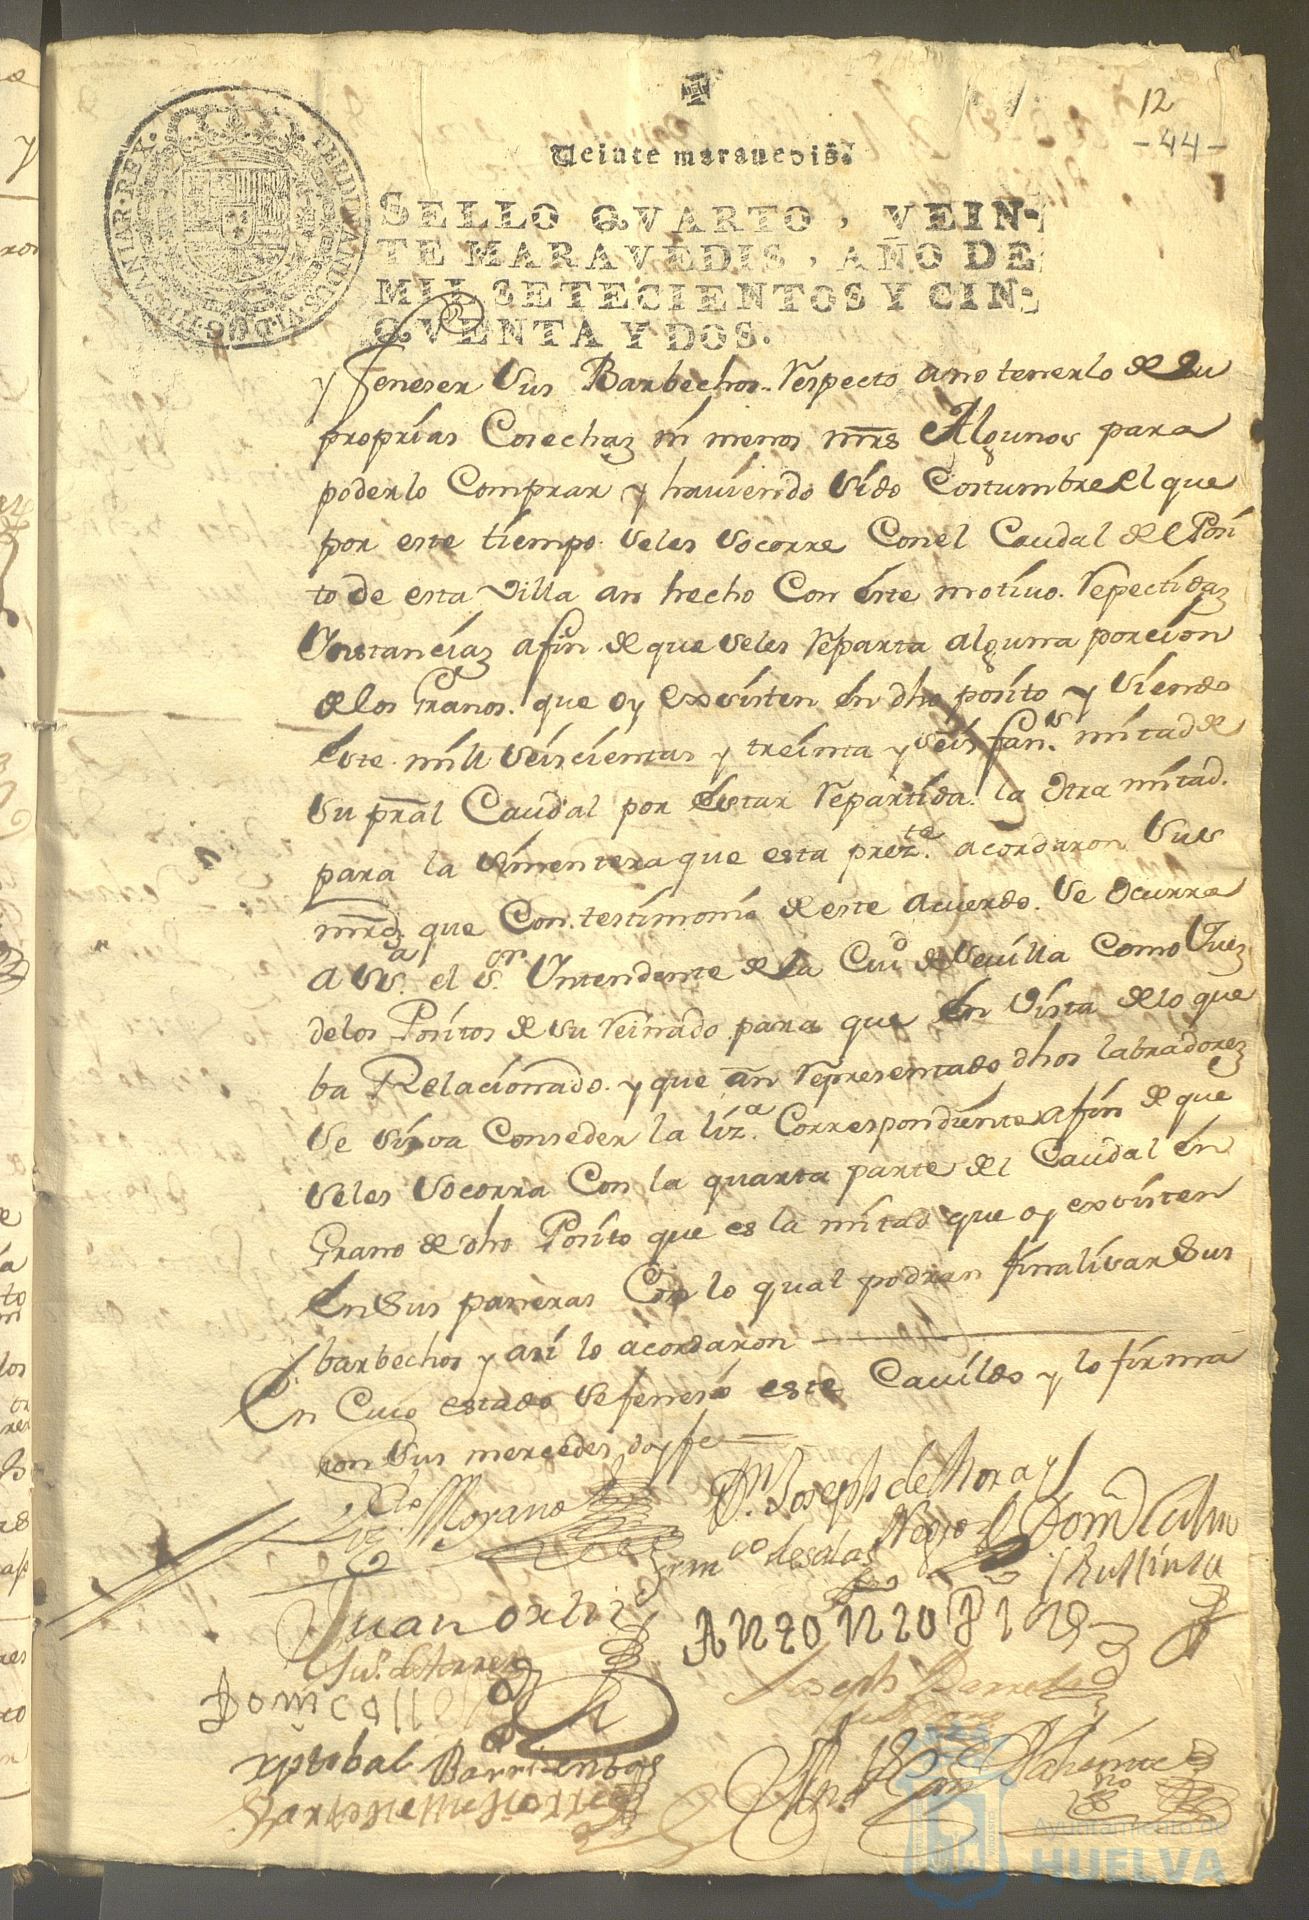 12
-44-
Veinte maravedis.
SELLO QVARTO, VEIN-
TE MARAVEDIS, AÑO DE
MIL SETECIENTOS Y CIN-
QVENTA Y DOS.
y feneser sus Barbechos. respecto ano tenerlo de su
proprias Cosechas ni menos mrs Algunos para
poderlo Comprar y haviendo sido Costumbre el que
por este tiempo seles socorre Conel Caudal del Posi
to de esta Villa an hecho Con este motivo. repectidas
Instancias afin de que seles reparta alguna porcion
delos Granos. que oy existen en dho posito y siendo
este mill seiscientas y treinta y seis fans. mitad de
su pral Caudal por estar repartida. la otra mitad.
para la simentera que esta prezte. acordaron sus
mrds. que Con. testimonio de este acuerdo. se ocurra
a sSa. el Sor. Intendente de la Ciud de Sevilla Como Juez
delos Positos de su reinado para que en vista de lo que
ba Relacionado. y que an representado dhos labradores
se sirva Conseder la liza. Correspondiente afin de que
seles socorra Con la quarta parte del Caudal en
Grano de dho Posito que es la mitad que oy existen
en sus paneras Con lo qual podran finalisar sus
barbechos y asi lo acordaron
En Cuio estado se feneso este Cavildo y lo firma
ron sus mercedes doy fe
Lizdo. Morano Dn Joseph de Mora y
Negro
Franco de salas
Juan ortiz
Joseph Barreda
Dom calle
xptobal Barrientos
Bartolome de torres
Ayuntamiento de
HUELVA